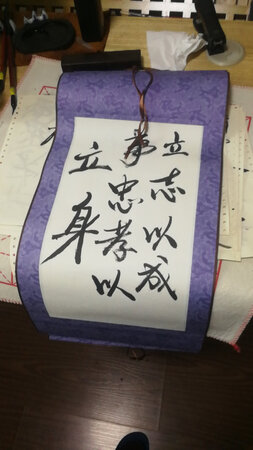 立志以成
事忠孝以
立身